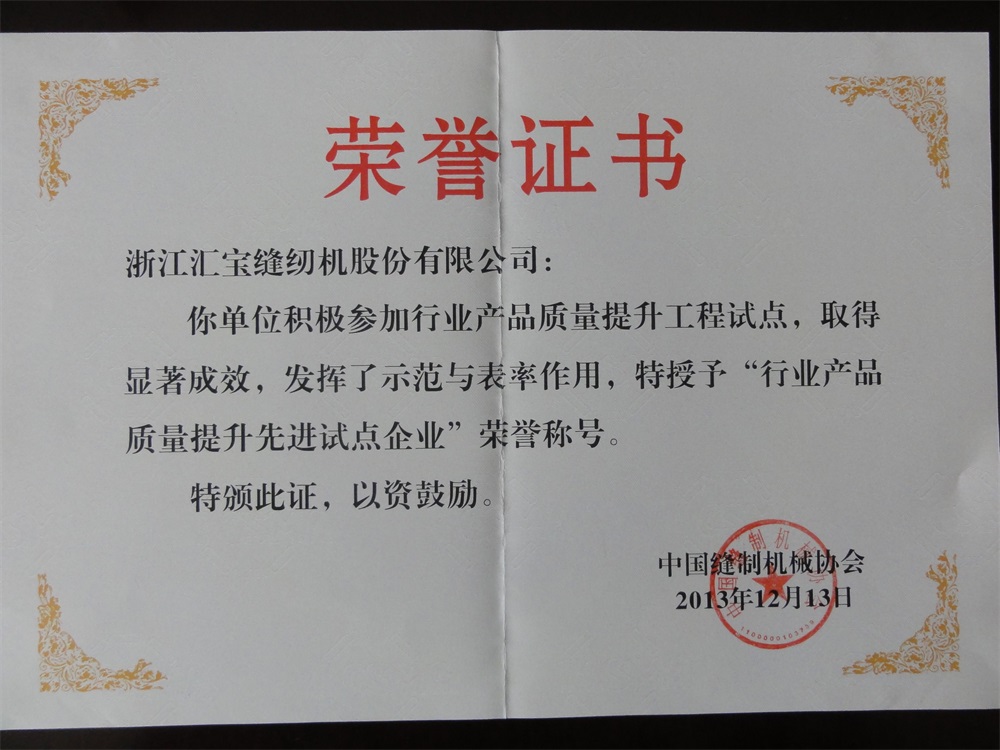 荣誉证书
浙江汇宝缝纫机股份有限公司：
你单位积极参加行业产品质量提升工程试点，取得
显著成效，发挥了示范与表率作用，特授予“行业产品
质量提升先进试点企业”荣誉称号。
特颁此证，以资鼓励。
中国缝制机械协会
2013年12月13日
中国缝制机械协会